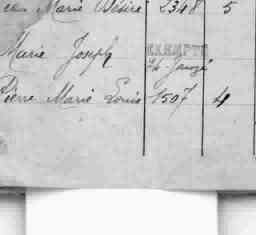 Marie Désiré 2348 5
Marie Joseph EXEMPTÉ
Pierre Marie Louis 1507 4